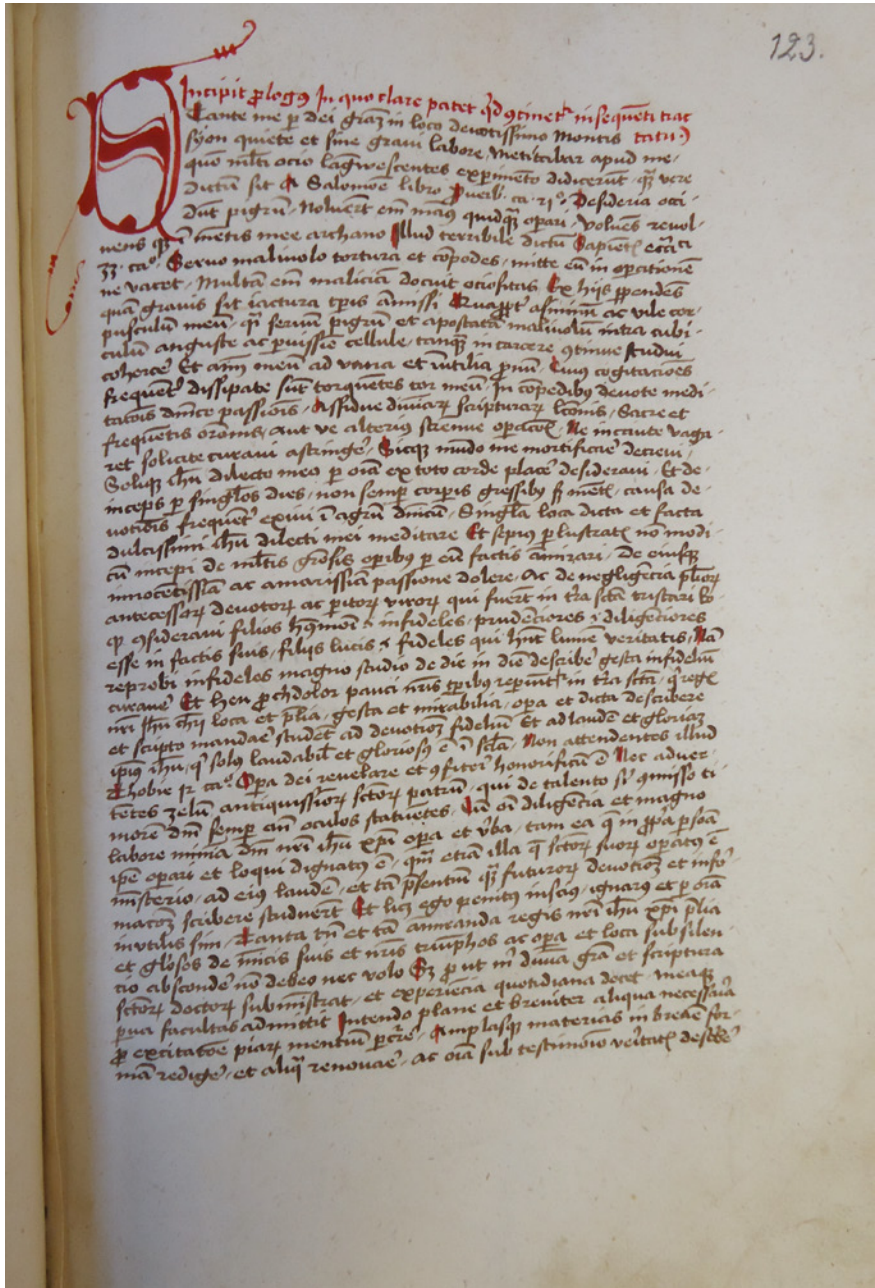 123.
Incipit prologus In quo clare patet qđ ꝯtinetᷣ in sequēti trac
tatu·)
Stante me ꝑ dei graʒ in loco devotissimo Montis
syon quiete et sine gravi labore, Meditabar apud me-
quo mlti ocio lagwescentes experimēto didicerūt, qʒ vere
Dictū sit A Salomōe libro ꝓuerb· ca· 21°· Desideria occi-
dūt pigrū, Noluerūt em̄ manꝰ quidqʒ opari, Volvēs revol-
vens qʒ ī mētis mee archano Illud terribile dictū Sapientꝭ eccᵗⁱᶜⁱ
33· ca°· Servo malivolo tortura et cōpedes, mitte eū in opacionē
ne vacet, Multā em̄ maliciā docuit ociositas Ex hijs ꝑpendēs
quā gravis sit iactura tꝑis āmissi Quaꝓpt asininū ac vile cor-
pusculū meū, qʒ servū pigrū et apostatā malivolū intra cubi-
culū anguste ac pauissīe cellule, tanqʒ in carcere ꝯtinue studui
cohercē Et aīm meū ad vana et inutilia pnū, Cuius cogitacōes
frequēt dissipate sūt torquētes cor meū, In cōpedibꝰ devote medi-
tacōis dnīce passiōis, Assidue divinaꝝ scripturaꝝ lcōnis, Sacre et
frequētis orōnis, aut ve alteriꝰ strenue opacōis, Ne incaute vaga-
ret solicite curavi astringē, Sicqʒ mūdo me mortificaē decrevi,
Soliqʒ ihū dilecto meo ꝑ oīa ex toto corde placē desideravi, Et de-
inceps ꝑ singlos dies, non semꝑ corꝑis gressibꝰ sʒ mētꝭ, causa de-
vocōis frequēt exivi ī agrū dnicū, Singla loca dicta et facta
dulcissimi ihū dilecti mei meditare Et sepiꝰ ꝑlustratꝭ nō modi-
cū incepi de mltis gnōsis opibꝰ ꝑ eū factis āmirari, De eiusqʒ
innocētissīa ac amarissīa passione dolere, Ac de negligēcia plīoꝝ
antecessoꝝ devotoꝝ ac peritoꝝ viroꝝ qui fuerūt in tra sctā tristari
ꝙ ꝯsideravi filios hꝰ mōi ⁊ infideles, prudēciores ⁊ diligēciores
esse in factis suis, filijs lucis ⁊ fideles qui hnt lume veritatis, Nā
reprobi infideles magno studio de die in diē describē gesta infideliū
curavē Et heu ꝓchdolor pauci nris tꝑibꝰ reperiūtᷣ in tra sctā, qⁱ regꝭ
nri ihū chri loca et plia, gesta et mirabilia, opa et dicta describere
et scripto mandaē studēt ad devotiōʒ fideliū Et ad laudē et gloriaʒ
ipīus ihū, qⁱ solꝰ laudabilꝭ et gloriosꝰ ē ī scla, Non attendentes illud
Thobie 12 ca°· Opa dei revelare et ꝯfiteri honorificū ē Nec adver-
tētes zelū antiquissioꝝ sctoꝝ patrū, qui de talento sī ꝯmisso ti-
morē dnī semꝑ an̄ oculos statuētes, Cū oī diligēcia et magno
labore minīa dnī nri ihū xpī opa et vba, tam ea q̄ in ꝓpa psōa
ipē opari et loqui dignatꝰ ē, qm̄ etiā illa q̄ sctoꝝ suoꝝ opatꝰ ē
mīsterio, ad eiꝰ laudē, et tā psentiū qʒ futuroꝝ devotiōʒ et infor-
macōʒ scribere studuerūt Et licʒ ego penitꝰ insciꝰ, ignarꝰ et ꝑ oīa
inutilis sim, Tanta tn̄ et tā āmiranda regis nri ihū xpī plia
et glōsos de inīcis suis et nris triūphos ac opa et loca sub silen-
cio abscondē nō debeo nec volo Sʒ ꝓut mⁱ divina gra et scriptura
sctoꝝ doctoꝝ submīstrat, et experiēcia quotidiana docet, meaqʒ
parva facultas admittit Intendo plane et breviter aliqua necessaria
ꝓ excitacōe piaꝝ mentiū ꝑcrē, Amplasqʒ materias in brevē for-
mā redigē, et aliqʒ renovaē, ac oīa sub testimōio veritatꝭ describē